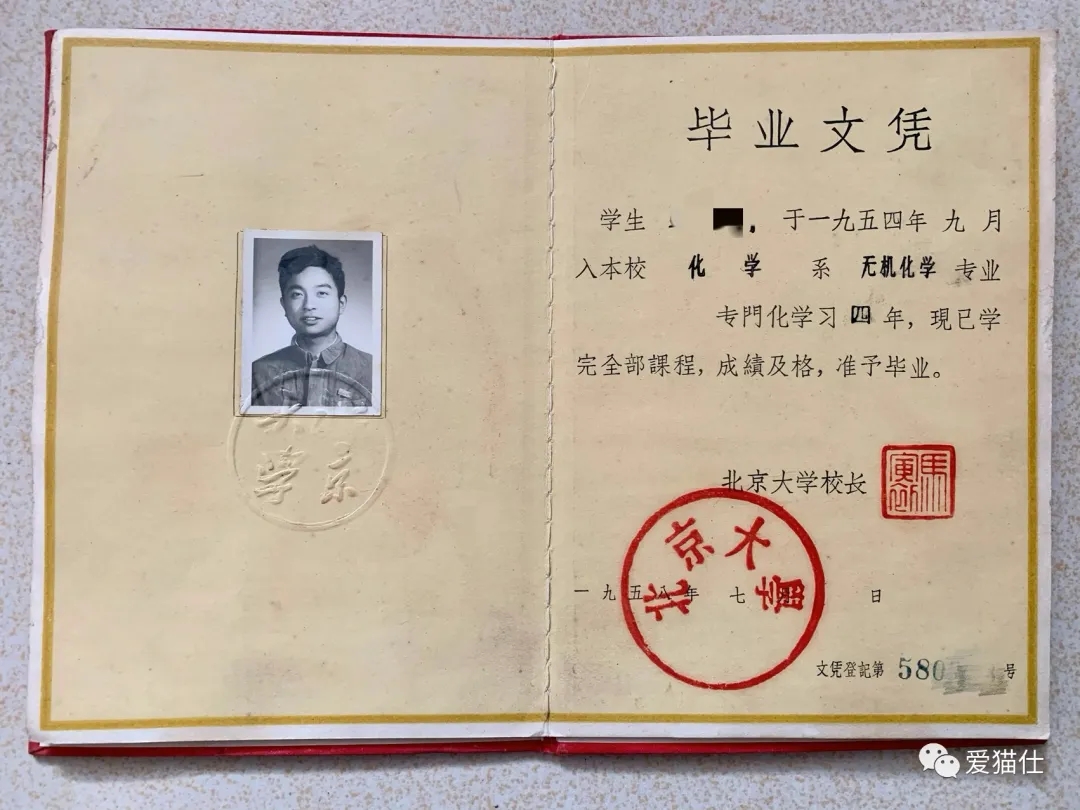 毕业文凭
学生 , 于一九五四年九月
入本校 化学 系 无机化学 专业
专門化学习 四 年, 現已学
完全部課程, 成績及格, 准予毕业。
北京大学校长
馬寅初
一九五八年 七 月 日
北京大學
文凭登記第 580 号
京
學
爱猫仕